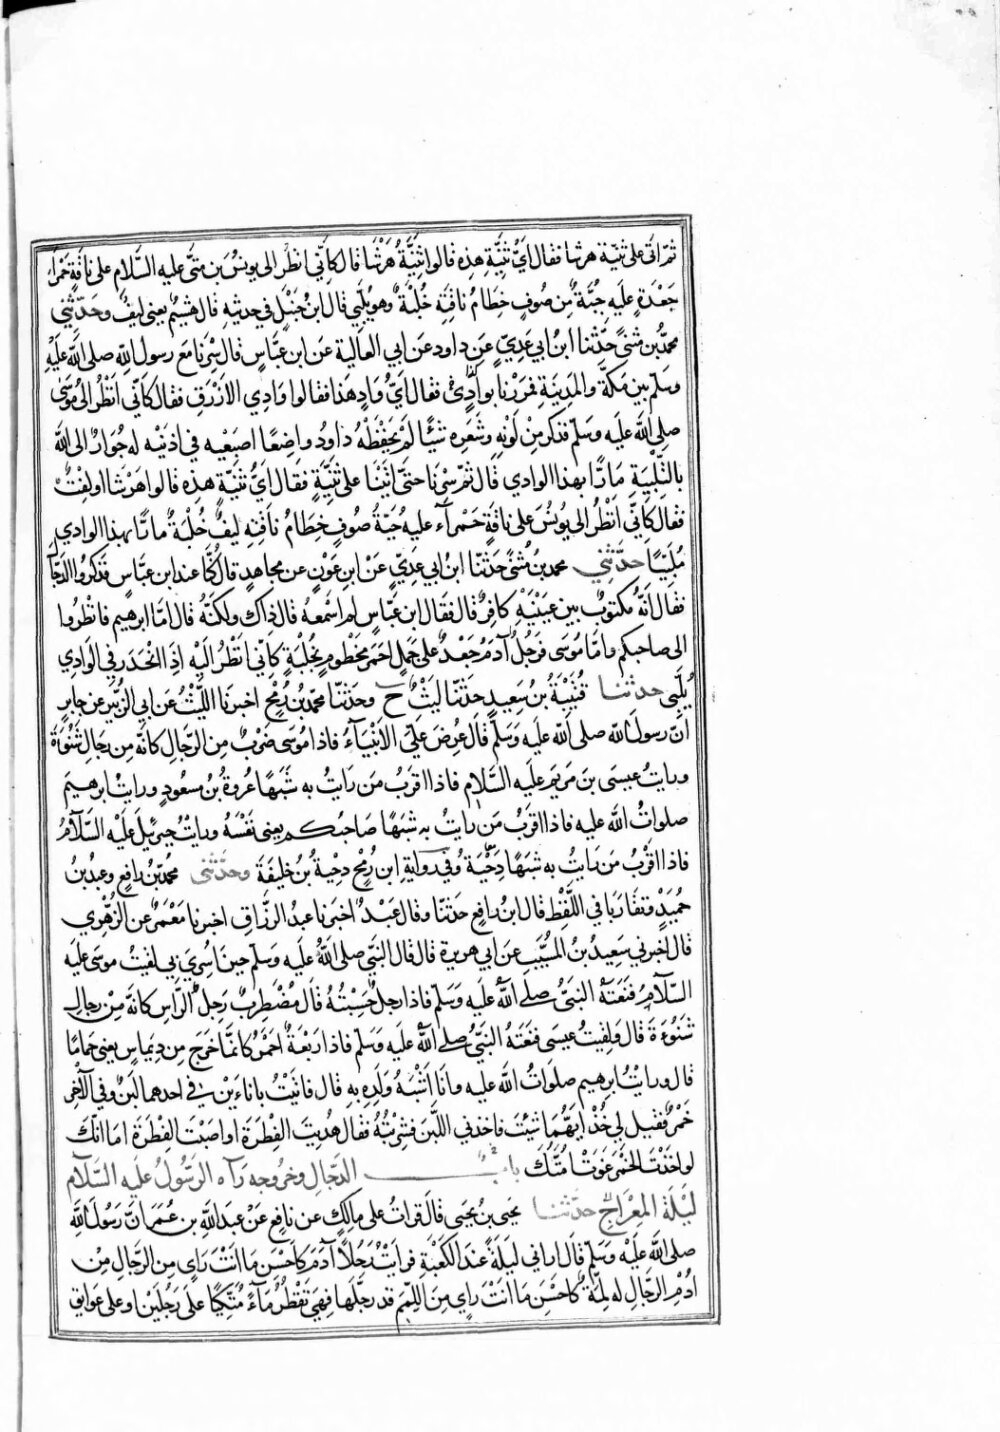 ثم اتى على ثنية هرشا فقال اَيُّ ثنِيَّةٍ هذِه قالوا ثنِيَّةُ هَرْشَا قال كانّي انظُر الى يونسَ بن متّى عليه السّلام على ناقةٍ حمرَاء
جَعْدَةٍ عليه جُبَّةٌ مِن صُوفٍ خِطَامُ ناقتِه خُلْبَةٌ وهو يُلَبِّي قال ابنُ حَنْبَلٍ في حديثِهِ قال هُشَيْمٌ يعنى لِيفٌ وحَدّثني
محمدُ بن مُثنىً حدّثنا ابنُ ابي عَدِيٍّ عن داود عن ابي العالية عن ابن عبّاسٍ قال سِرْنا مع رسول الله صلى الله عليْهِ
وسلم بين مكّةَ والمدينةِ فمرَرْنا بوادٍ فقال اَيُّ وادٍ هذا فقالوا وَادِي الازْرَقِ فقال كانّي انظُر الى مُوسَى
صلى الله عليه وسلم فذكر مِنْ لَوْنِهِ وشَعَرِه شيئًا لم يَحْفَظْهُ داود واضِعًا اصبَعَيه في اذنَيْه له جُوَارٌ الى الله
بالتَّلْبِيَةِ مَارًّا بهذا الوادي قال ثمّ سِرْنا حتى اتَيْنا على ثنِيَّةٍ فقال اَيُّ ثنيّةٍ هذِه قالوا هَرْشَا اولِفْتٌ
فقال كانّي انظُر الى يُونُسَ على ناقةٍ حَمْراءَ عليه جُبّةُ صُوفٍ خِطامُ ناقتِه لِيفٌ خُلْبَةٌ مارًّا بهذا الوادي
مُلَبِّيًا حدّثني محمد بن مُثنىً حدثنا ابنُ ابي عَدِيٍّ عن ابنِ عَوْنٍ عن مجاهدٍ قال كُنّا عند ابن عبّاسٍ فذكروا الدّجّال
فقال انّهُ مكتوبٌ بين عينَيْهِ كافرٌ قال فقال ابن عبّاسٍ لم اسْمَعه قال ذاك ولكنّهُ قال امّا ابرهيم فانظُروا
الى صاحبِكم وامّا مُوسَى فرَجُلٌ آدَمُ جَعْدٌ على جَمَلٍ احمَرَ مَخْطُومٍ بخُلْبَةٍ كانّي انظُر اليْه اِذَا انحَدَر في الوَادِي
يُلَبِّي حدثنا قُتيْبَةُ بن سَعيدٍ حَدّثنا لَيْثٌ ح وحَدّثنا محمّدُ بن رُمْحٍ اخبرنا اللّيْثُ عن ابي الزّبير عن جابرٍ
انّ رسول الله صلى الله عليه وسلم قال عُرِضَ علَيَّ الانْبِيَاءُ فاذا موسَى ضَرْبٌ مِن الرِّجالِ كانّه مِن رِجَالِ شَنُوءَةَ
ورايتُ عيسى بنَ مَريَم عليه السّلام فاذا اقرَبُ مَن رَايْتُ به شَبَهًا عُروةُ بن مسعودٍ ورايتُ ابرهيم
صلواتُ الله عليه فاذا اقرَبُ مَن رايتُ به شَبهًا صَاحِبُكم يعنى نَفْسَهُ ورايتُ جبرئيلَ عليه السّلَامُ
فاذا اقربُ مَن رَايتُ به شَبَهًا دَحْيَةُ وفي روايةِ ابنِ رُمْحٍ دِحْيةُ بن خليفَةَ وحَدّثني محمّدُ بن رافعٍ وعبدُ بن
حُمَيْدٍ وتقارَبا في اللّفْظِ قال ابنُ رافعٍ حَدّثنا وقال عَبْدٌ اخبَرَنا عبد الرزّاق اخبرنا مَعْمَرٌ عن الزُّهْري
قال اخبرني سعيدُ بن المُسَيَّبِ عن ابي هريرة قال قال النّبيُّ صلى الله عليه وسلم حينَ اُسْرِيَ بي لقيتُ موسى عليه
السّلامُ فنَعَتَهُ النبيُّ صلى الله عليه وسلم فاذا رجلٌ حَسِبْتُهُ قال مُضْطَرِبٌ رَجِلُ الرّاسِ كانّه مِنْ رجالِ
شَنُوءَةَ قال ولقيتُ عيسى فنَعَتَهُ النبيُّ صلى الله عليه وسلم فاذا رَبْعَةٌ احمَرُ كانّما خَرَجَ مِن دِيمَاسٍ يعني حمّامًا
قال ورايْتُ ابرهيم صلواتُ الله عليه وانَا اَشْبَهُ وَلَدِهِ بِهِ قال فاتيْتُ باناءَيْنِ في احدهما لَبَنٌ وفي الآخر
خَمْرٌ فقيل لي خُذْ ايّهُمَا شِئتَ فاخذتُ اللّبنَ فشرِبْتُهُ فقال هُدِيتَ الفِطْرَةَ او اصَبْتَ الفِطْرَةَ امَا انّكَ
لو اخَذْتَ الخَمْرَ غَوَتْ اُمّتُكَ باب الدّجّالِ وخروجه رَآه الرّسُولُ عليه السّلام
لَيْلَةَ المِعْرَاجِ حدّثنا يحيى بن يحيى قال قراتُ على مالكٍ عن نافعٍ عن عبد الله بن عُمَرَ انّ رسُولَ الله
صلى الله عليه وسلم قال اراني ليلَةً عند الكعْبَةِ فرايْتُ رَجُلًا آدَمَ كاَحْسَنِ مَا انتَ رَايٍ مِن الرّجالِ مِن
اُدْمِ الرّجالِ له لِمَّةٌ كاحْسَنِ مَا انتَ رَايٍ مِنَ اللِّمَمِ قد رجّلها فهِيَ تَقْطُرُ مَاءً مُتّكِئًا على رَجُلَيْنِ او على عَوَاتِقِ